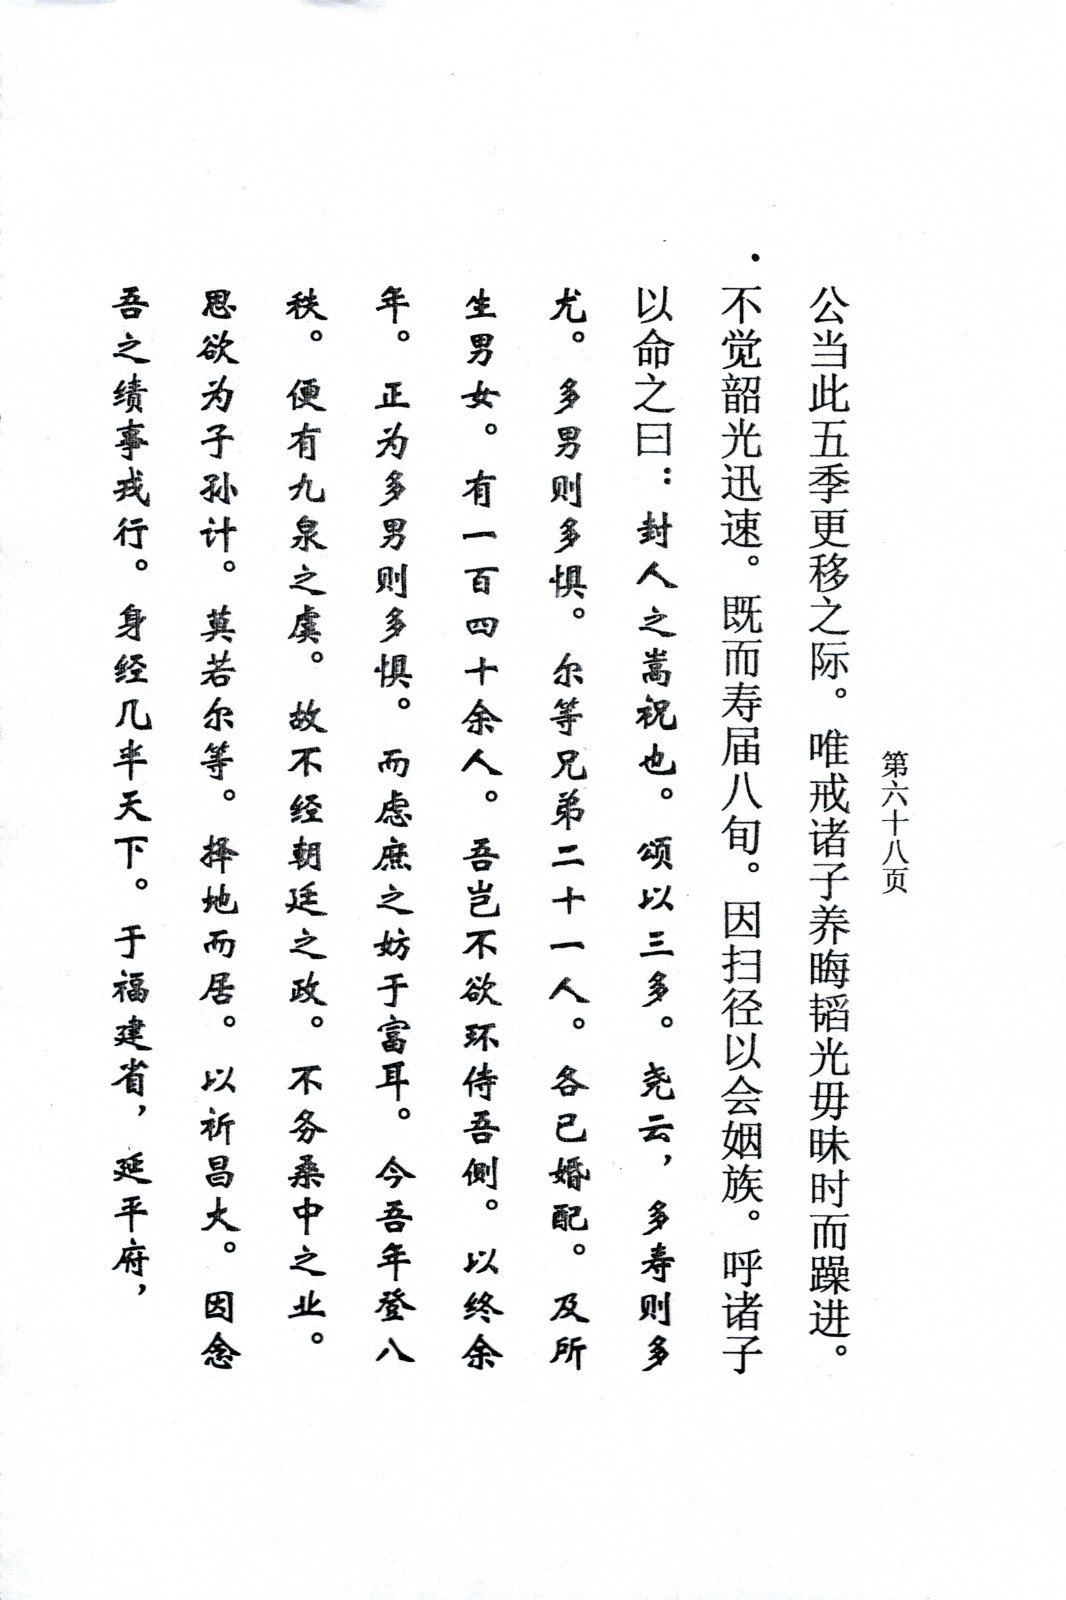 第六十八页
公当此五季更移之际。唯戒诸子养晦韬光毋昧时而躁进。
不觉韶光迅速。既而寿届八旬。因扫径以会姻族。呼诸子
以命之曰：封人之嵩祝也。颂以三多。尧云，多寿则多
尤。多男则多惧。尔等兄弟二十一人。各已婚配。及所
生男女。有一百四十余人。吾岂不欲环侍吾侧。以终余
年。正为多男则多惧。而虑庶之妨于富耳。今吾年登八
秩。便有九泉之虞。故不经朝廷之政。不务桑中之业。
思欲为子孙计。莫若尔等。择地而居。以祈昌大。因念
吾之绩事戎行。身经几半天下。于福建省，延平府，